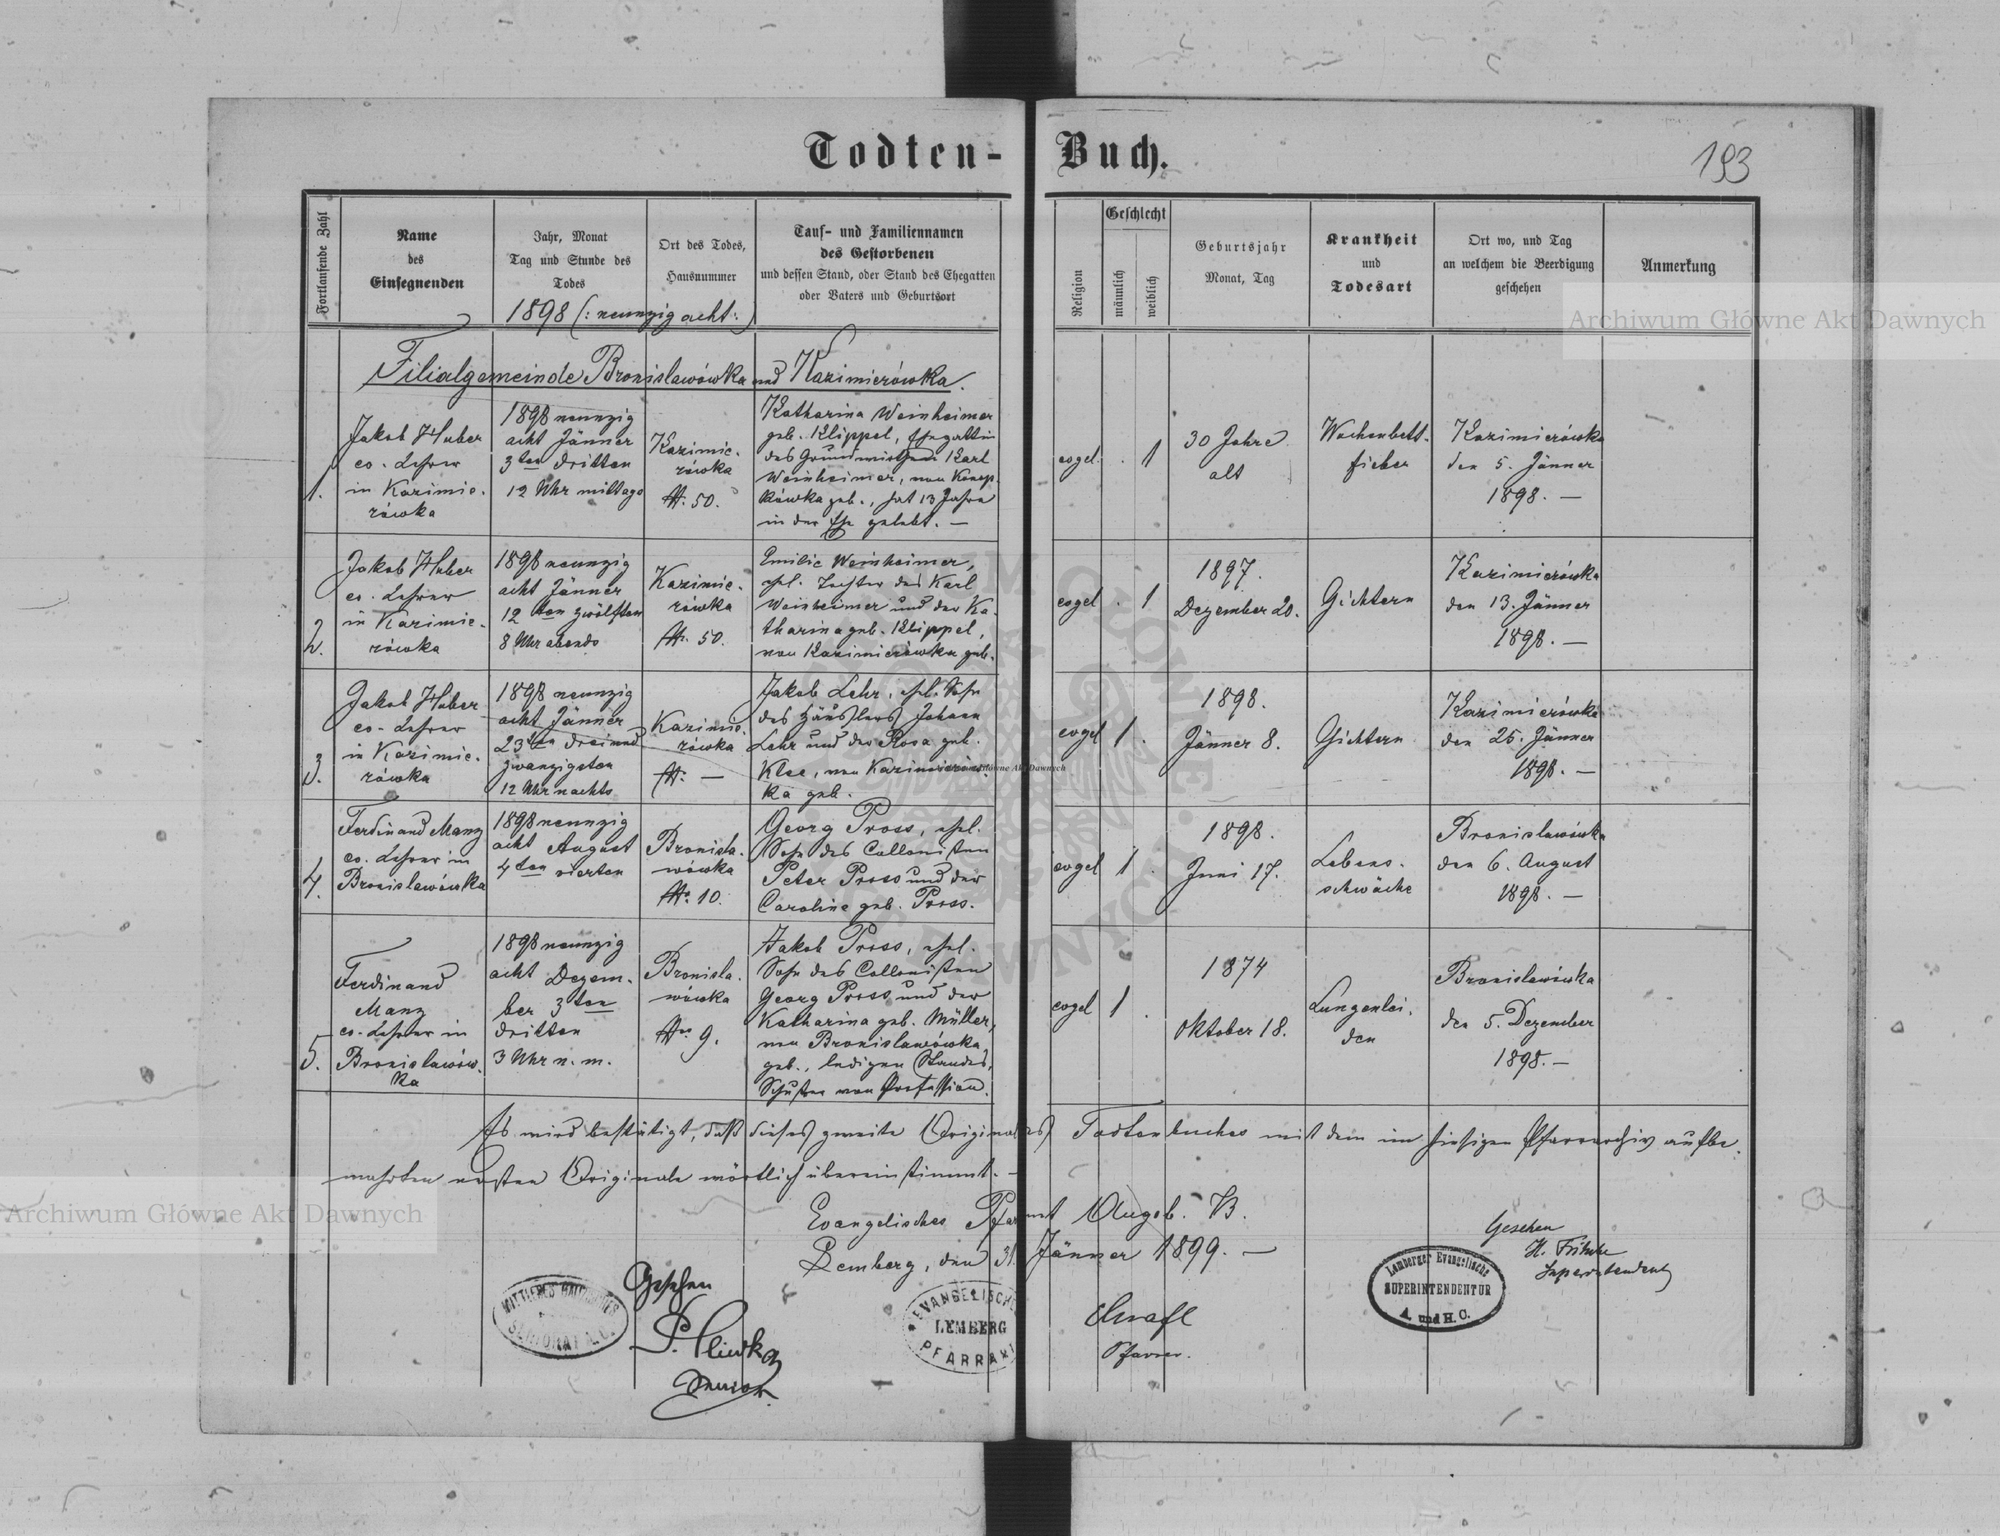 Todten- Buch.
193
Fortlaufende Zahl
Name
des
Einsegnenden
Jahr, Monat
Tag und Stunde des
Todes
Ort des Todes,
Hausnummer
Tauf- und Familiennamen
des Gestorbenen
und dessen Stand, oder Stand des Ehegatten
oder Vaters und Geburtsort
Religion
Geschlecht
männlich
weiblich
Geburtsjahr
Monat, Tag
Krankheit
und
Todesart
Ort wo, und Tag
an welchem die Beerdigung
geschehen
Anmerkung
1898 (: neunzig acht :)
Filialgemeinde Bronislawówka und Kazimierówka.
1.
Jakob Huber
ev. Lehrer
in Kazimie-
rówka
1898 neunzig
acht Jänner
3ten dritten
12 Uhr mittags
Kazimie-
rówka
No. 50.
Katharina Weinheimer
geb. Klippel, Ehegattin
des Grundwirthen Karl
Weinheimer, von Konop-
kówka geb., hat 13 Jahre
in der Ehe gelebt. —
evgel. . 1
30 Jahre
alt
Wochenbett-
fieber
Kazimierówka
den 5. Jänner
1898. —
2.
Jakob Huber
ev. Lehrer
in Kazimie-
rówka
1898 neunzig
acht Jänner
12ten zwölften
8 Uhr abends
Kazimie-
rówka
No. 50.
Emilie Weinheimer,
ehel. Tochter des Karl
Weinheimer und der Ka-
tharina geb. Klippel,
von Kazimierówka geb.
evgel . 1
1897.
Dezember 20.
Gichtern
Kazimierówka
den 13. Jänner
1898. —
3.
Jakob Huber
ev. Lehrer
in Kazimie-
rówka
1898 neunzig
acht Jänner
23ten dreiund
zwanzigsten
12 Uhr nachts
Kazimie-
rówka
No. —
Jakob Lehr, ehel. Sohn
des Häuslers Johann
Lehr und der Rosa geb.
Klee, von Kazimierów-
ka geb.
evgel 1 .
1898.
Jänner 8.
Gichtern
Kazimierówka
den 25. Jänner
1898. —
4.
Ferdinand Manz
ev. Lehrer in
Bronislawówka
1898 neunzig
acht August
4ten vierten
Bronisla-
wówka
No. 10.
Georg Pross, ehel.
Sohn des Collonisten
Peter Pross und der
Caroline geb. Pross.
evgel 1 .
1898.
Juni 17.
Lebens-
schwäche
Bronislawówka
den 6. August
1898. —
5.
Ferdinand
Manz
ev. Lehrer in
Bronislawów-
ka
1898 neunzig
acht Dezem-
ber 3ten
dritten
3 Uhr n. m.
Bronisla-
wówka
No. 9.
Jakob Pross, ehel.
Sohn des Collonisten
Georg Pross und der
Katharina geb. Müller,
von Bronislawówka
geb., ledigen Standes,
Schuster von Profession.
evgel 1 .
1874
Oktober 18.
Lungenlei-
den
Bronislawówka
den 5. Dezember
1898. —
Es wird bestätigt, daß dieses zweite Original des Todtenbuches mit dem im hiesigen Pfarrarchiv aufbe-
wahrten ersten Originale wörtlich übereinstimmt. —
Evangelisches Pfarramt Augsb. B.
Lemberg, den 31. Jänner 1899. —
Gesehen
Senior.
EVANGELISCHES
LEMBERG
PFARRAMT
Pfarrer.
Gesehen
Superintendent
Lemberger Evangelische
SUPERINTENDENTUR
A. und H. C.
Archiwum Główne Akt Dawnych
Archiwum Główne Akt Dawnych